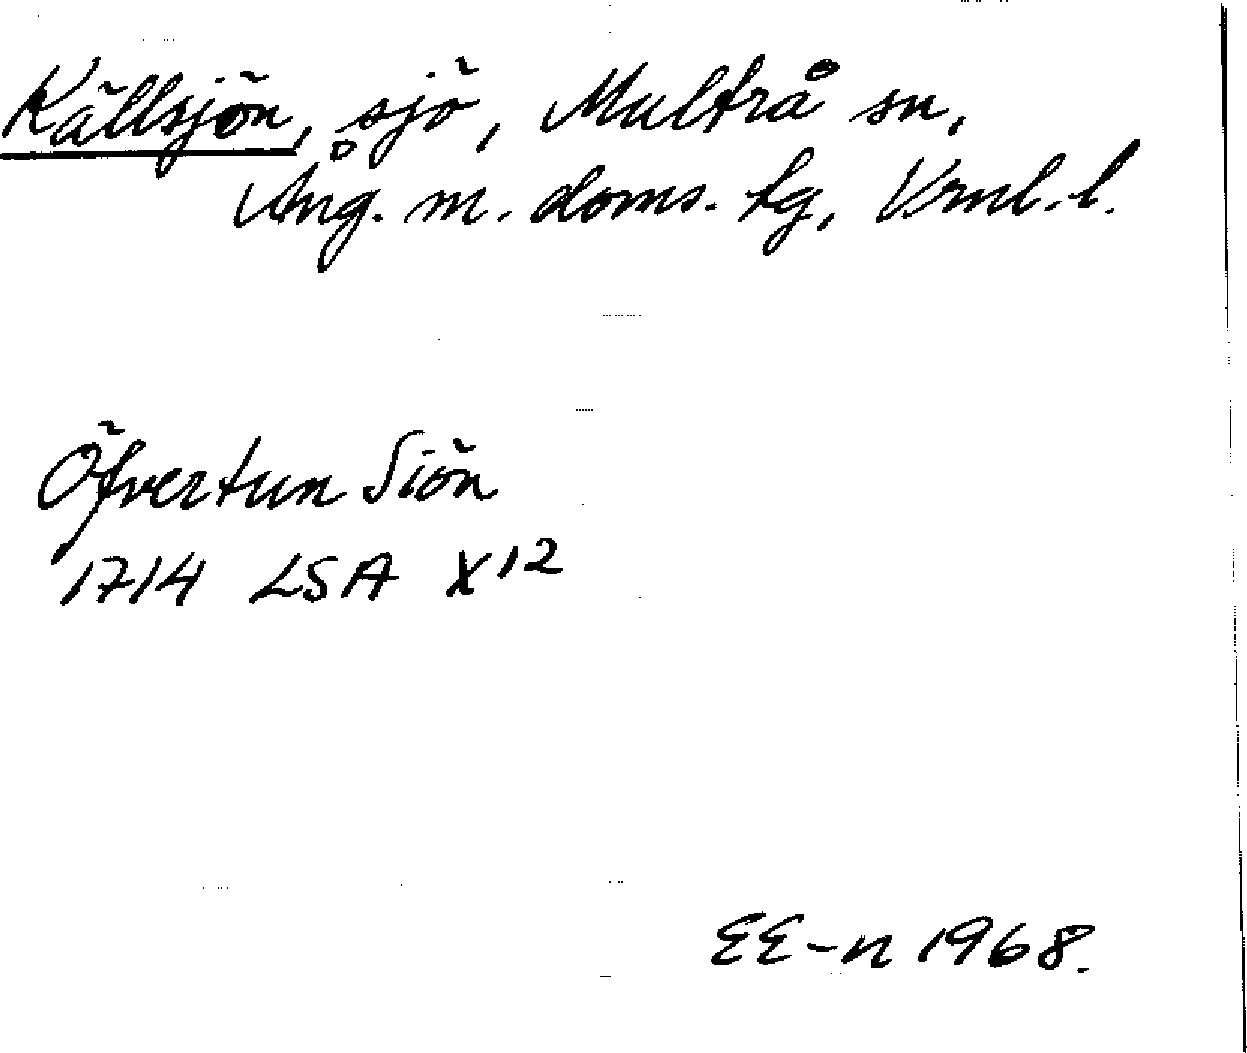 Källsjön, sjö, Multrå sn,
Ång. m. doms. tg, Vrnl. l.
Öfvertun Siön
1714 LSA X12
EE-n 1968.